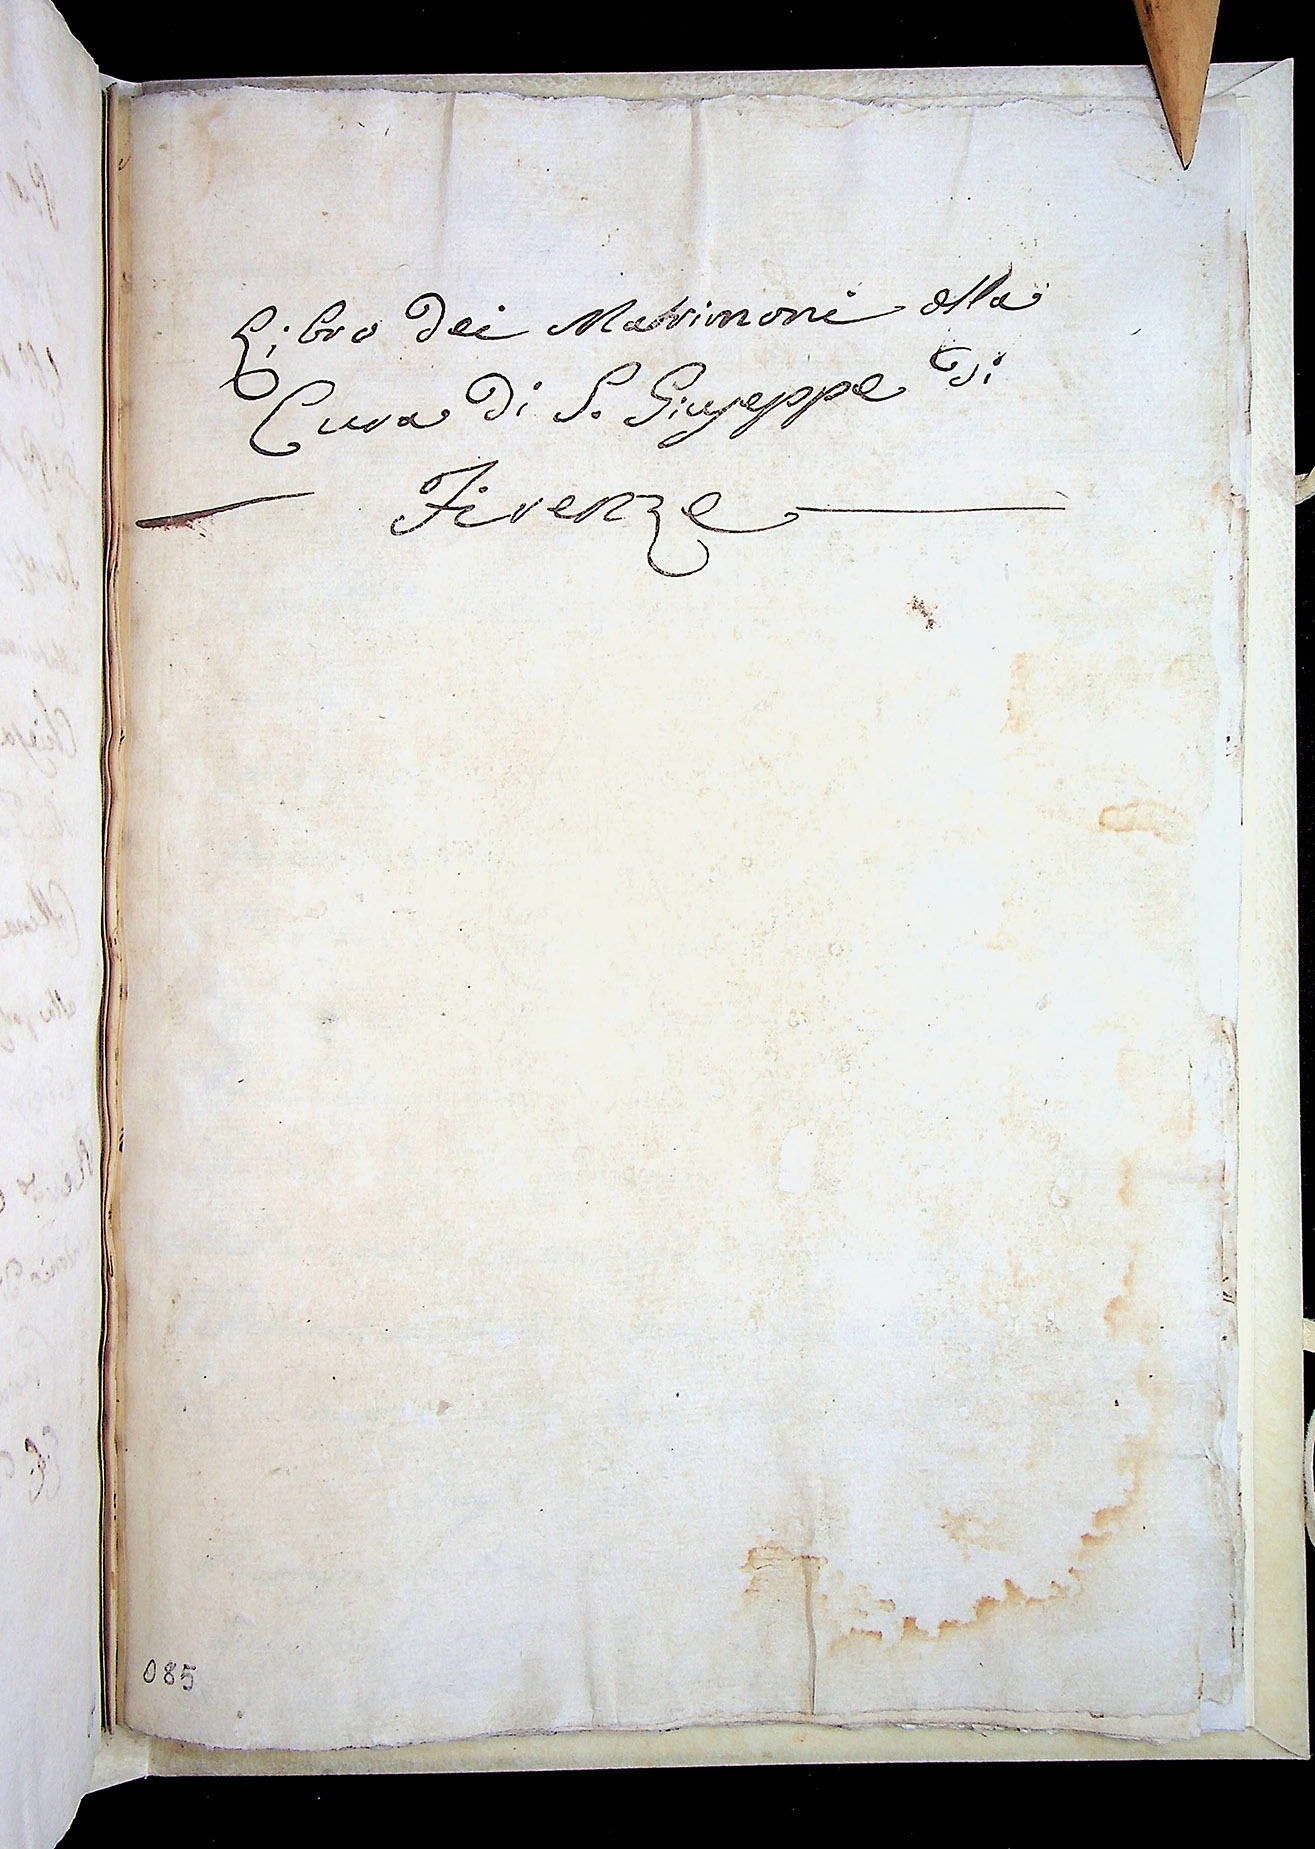 Libro dei Matrimoni della
Cura di S. Giuseppe di
Firenze
085